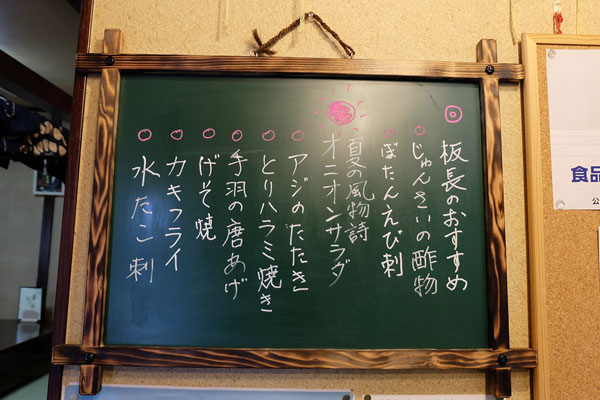 ◎ 板長のおすすめ
○ じゅんさいの酢物
○ ぼたんえび刺
夏の風物詩
オニオンサラダ
○ アジの「たたき」
○ とりハラミ焼き
○ 手羽の唐あげ
○ げそ焼
○ カキフライ
○ 水たこ刺
食品
公